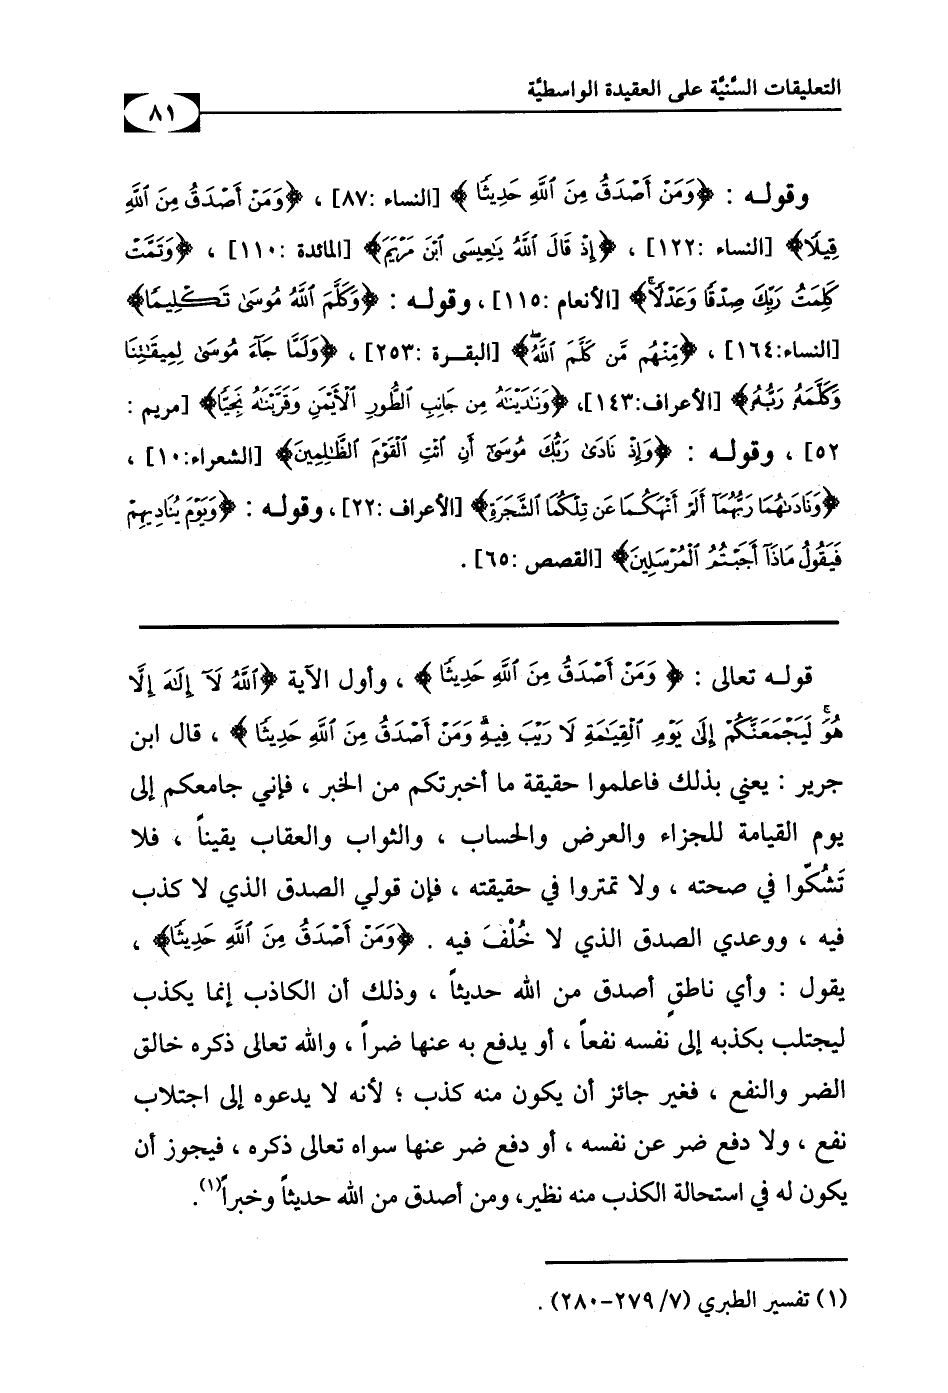 التعليقات السَّنيَّة على العقيدة الواسطيَّة
٨١
وقولـه : ﴿وَمَنْ أَصْدَقُ مِنَ ٱللَّهِ حَدِيثًا﴾ [النساء :٨٧] ، ﴿وَمَنْ أَصْدَقُ مِنَ ٱللَّهِ
قِيلًا﴾ [النساء :١٢٢] ، ﴿إِذْ قَالَ ٱللَّهُ يَٰعِيسَى ٱبْنَ مَرْيَمَ﴾ [المائدة :١١٠] ، ﴿وَتَمَّتْ
كَلِمَتُ رَبِّكَ صِدْقًا وَعَدْلًا﴾ [الأنعام :١١٥] ، وقولـه : ﴿وَكَلَّمَ ٱللَّهُ مُوسَىٰ تَكْلِيمًا﴾
[النساء:١٦٤] ، ﴿مِنْهُم مَّن كَلَّمَ ٱللَّهُ﴾ [البقـرة :٢٥٣] ، ﴿وَلَمَّا جَآءَ مُوسَىٰ لِمِيقَٰتِنَا
وَكَلَّمَهُۥ رَبُّهُۥ﴾ [الأعراف:١٤٣]، ﴿وَنَٰدَيْنَٰهُ مِن جَانِبِ ٱلطُّورِ ٱلْأَيْمَنِ وَقَرَّبْنَٰهُ نَجِيًّا﴾ [مريم :
٥٢] ، وقولـه : ﴿وَإِذْ نَادَىٰ رَبُّكَ مُوسَىٰٓ أَنِ ٱئْتِ ٱلْقَوْمَ ٱلظَّٰلِمِينَ﴾ [الشعراء:١٠] ،
﴿وَنَادَىٰهُمَا رَبُّهُمَآ أَلَمْ أَنْهَكُمَا عَن تِلْكُمَا ٱلشَّجَرَةِ﴾ [الأعراف :٢٢] ، وقولـه : ﴿وَيَوْمَ يُنَادِيهِمْ
فَيَقُولُ مَاذَآ أَجَبْتُمُ ٱلْمُرْسَلِينَ﴾ [القصص :٦٥] .
قولـه تعالى : ﴿وَمَنْ أَصْدَقُ مِنَ ٱللَّهِ حَدِيثًا﴾ ، وأول الآية ﴿ٱللَّهُ لَآ إِلَٰهَ إِلَّا
هُوَ ۚ لَيَجْمَعَنَّكُمْ إِلَىٰ يَوْمِ ٱلْقِيَٰمَةِ لَا رَيْبَ فِيهِ ۗ وَمَنْ أَصْدَقُ مِنَ ٱللَّهِ حَدِيثًا﴾ ، قال ابن
جرير : يعني بذلك فاعلموا حقيقة ما أخبرتكم من الخبر ، فإني جامعكم إلى
يوم القيامة للجزاء والعرض والحساب ، والثواب والعقاب يقيناً ، فلا
تَشُكّوا في صحته ، ولا تمتروا في حقيقته ، فإن قولي الصدق الذي لا كذب
فيه ، ووعدي الصدق الذي لا خُلْفَ فيه . ﴿وَمَنْ أَصْدَقُ مِنَ ٱللَّهِ حَدِيثًا﴾ ،
يقول : وأي ناطقٍ أصدق من الله حديثاً ، وذلك أن الكاذب إنما يكذب
ليجتلب بكذبه إلى نفسه نفعاً ، أو يدفع به عنها ضراً ، والله تعالى ذكره خالق
الضر والنفع ، فغير جائز أن يكون منه كذب ؛ لأنه لا يدعوه إلى اجتلاب
نفع ، ولا دفع ضر عن نفسه ، أو دفع ضر عنها سواه تعالى ذكره ، فيجوز أن
يكون له في استحالة الكذب منه نظير، ومن أصدق من الله حديثاً وخبراً(١).
(١) تفسير الطبري (٧/ ٢٧٩–٢٨٠) .